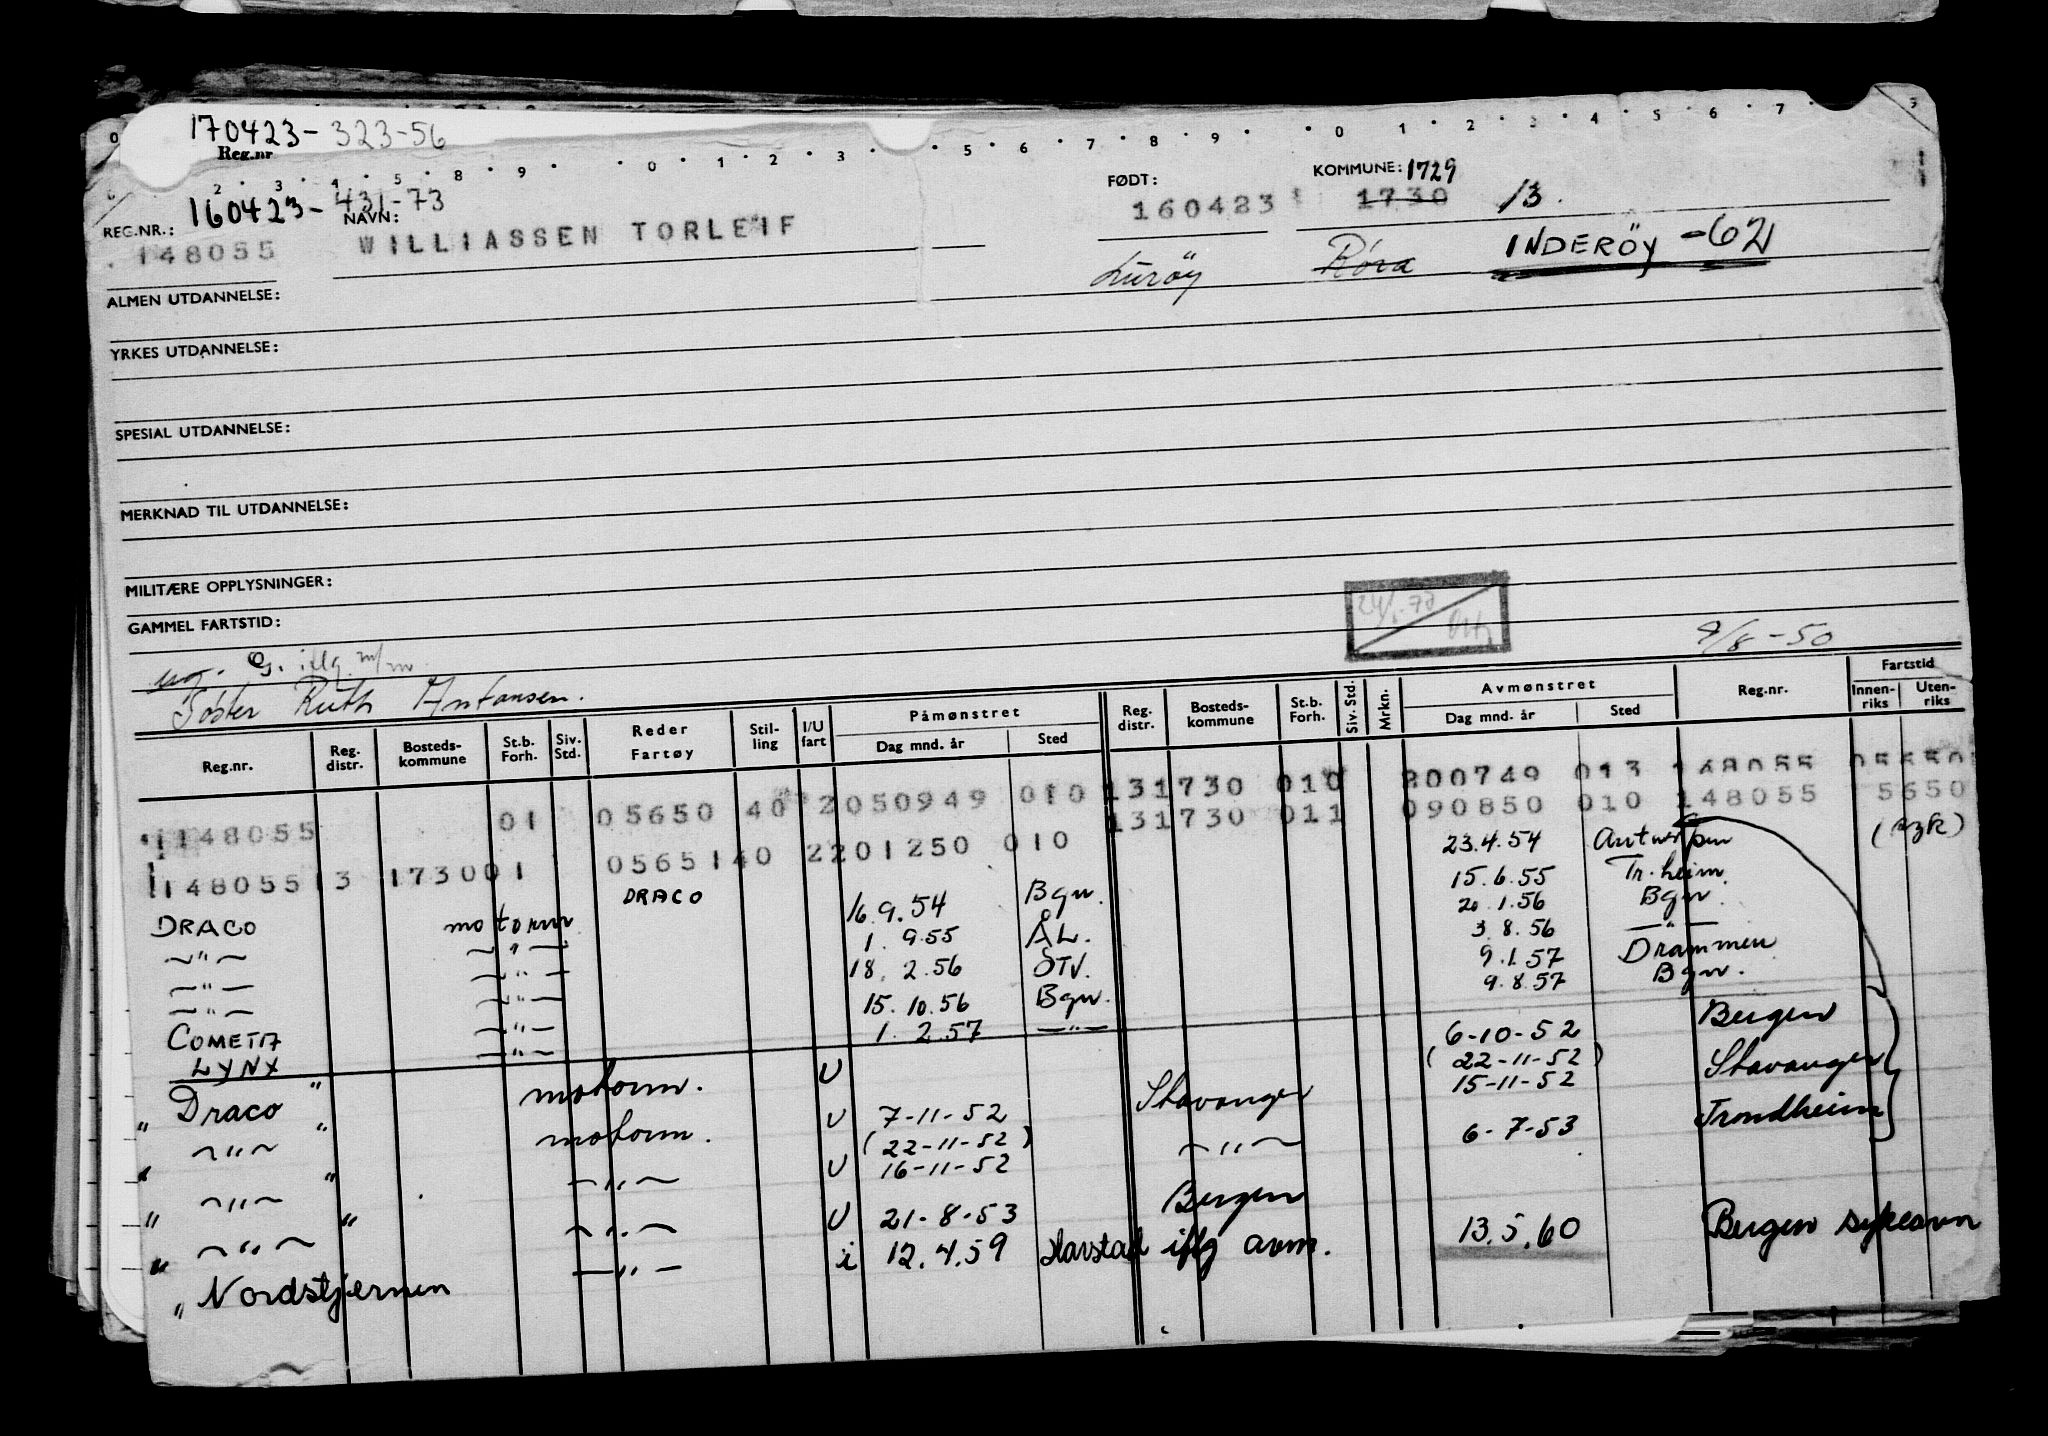 170423- 323-56
Reg.nr
0 1 2 3 5 6 7 8 9 0 1 2 3 4 5 6 7
2 3 4 5 8 9 0 1 2 3
160423- 431-73
REG.NR.: NAVN: FØDT: KOMMUNE: 1729
148055 WILLIASSEN TORLEIF 160423 1730 13.
Lurøy Røra INDERÖY -62
ALMEN UTDANNELSE:
YRKES UTDANNELSE:
SPESIAL UTDANNELSE:
MERKNAD TIL UTDANNELSE:
MILITÆRE OPPLYSNINGER:
GAMMEL FARTSTID:
ug. G. iflg m/m 9/8-50
Søster Ruth Antonsen.
Reg.nr. Reg. distr. Bosteds-kommune St.b. Forh. Siv. Std. Reder Fartøy Stil-ling I/U fart Påmønstret Dag mnd. år Sted Reg. distr. Bosteds-kommune St.b. Forh. Siv. Std. Mrkn. Avmønstret Dag mnd. år Sted Reg.nr. Fartstid Innen-riks Uten-riks
148055 01 05650 40 2050949 010 131730 010 300749 013 148055 05550
148055 13 173001 05651 40 2201250 010 131730 011 090850 010 148055 5650
DRACO 23.4.54 Antwerpen
DRACO motorm 16.9.54 Bgn. 15.6.55 Tr.heim
—"— —"— 1. 9.55 ÅL. 20.1.56 Bgn.
—"— —"— 18. 2.56 STV. 3.8.56 —"—
—"— —"— 15.10.56 Bgn. 9.1.57 Drammen
COMETA —"— 1. 2.57 —"— 9.8.57 Bgn.
LYNX —"—
" Draco " motorm. U 6-10-52 Bergen
" —"— " motorm. U 7-11-52 Stavanger (22-11-52) 15-11-52 Stavanger
" —"— " —"— U (22-11-52) 16-11-52 —"— 6-7-53 Trondheim
" —"— " —"— U 21-8-53 Bergen
" Nordstjernen —"— i 12.4.59 Harstad iflg avm. 13.5.60 Bergen sykeavm